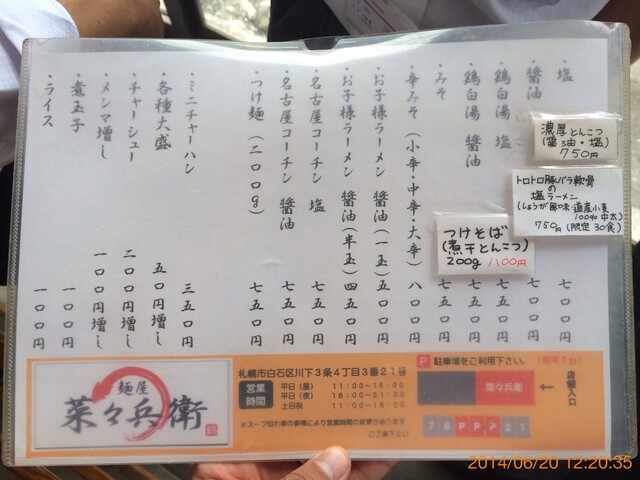 ・塩 七〇〇円
・醤油 七〇〇円
・鶏白湯 塩 七五〇円
・鶏白湯 醤油 七五〇円
・みそ 七五〇円
・辛みそ（小辛・中辛・大辛） 八〇〇円
・お子様ラーメン 醤油（一玉） 五〇〇円
・お子様ラーメン 醤油（半玉） 四五〇円
・名古屋コーチン 塩 七五〇円
・名古屋コーチン 醤油 七五〇円
・つけ麺（二〇〇g） 七五〇円
・ミニチャーハン 三五〇円
・各種大盛 五〇円増し
・チャーシュー 二〇〇円増し
・メンマ増し 一〇〇円増し
・煮玉子 一〇〇円
・ライス 一〇〇円
濃厚とんこつ
(醤油・塩)
750円
トロトロ豚バラ軟骨
の
塩ラーメン
(しょうが風味・道産小麦
100% 中太)
750円(限定30食)
つけそば
(煮干とんこつ)
200g 1100円
麺屋
菜々兵衛
札幌市白石区川下3条4丁目3番21号
営業時間
平日(昼) 11:00〜15:00
平日(夜) 18:00〜21:00
土日祝 11:00〜15:00
※スープ切れ等の事情により営業時間の変更があります
ご了承下さい
P 駐車場をご利用下さい。
菜々兵衛
← 店舗入口
7 6 P P P 2 1
2014/06/20 12:20:35